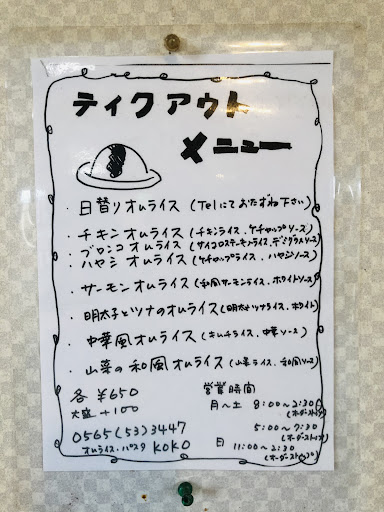 ティクアウト
メニュー
・日替りオムライス (Telにておたずね下さい)
・チキンオムライス (チキンライス、ケチャップソース)
・ブロンコオムライス (サイコロステーキライス、デミグラスソース)
・ハヤシオムライス (ケチャップライス、ハヤシソース)
・サーモンオムライス (和風サーモンライス、ホワイトソース)
・明太子とツナのオムライス (明太とツナライス、ホワイト)
・中華風オムライス (キムチライス、中華ソース)
・山菜の和風オムライス (山菜ライス、和風ソース)
各 ¥650
大盛 +100
0565(53)3447
オムライス・パスタ KOKO
営業時間
月〜土 8:00〜2:30
(オーダーストップ)
5:00〜7:30
(オーダーストップ)
日 11:00〜2:30
(オーダーストップ)